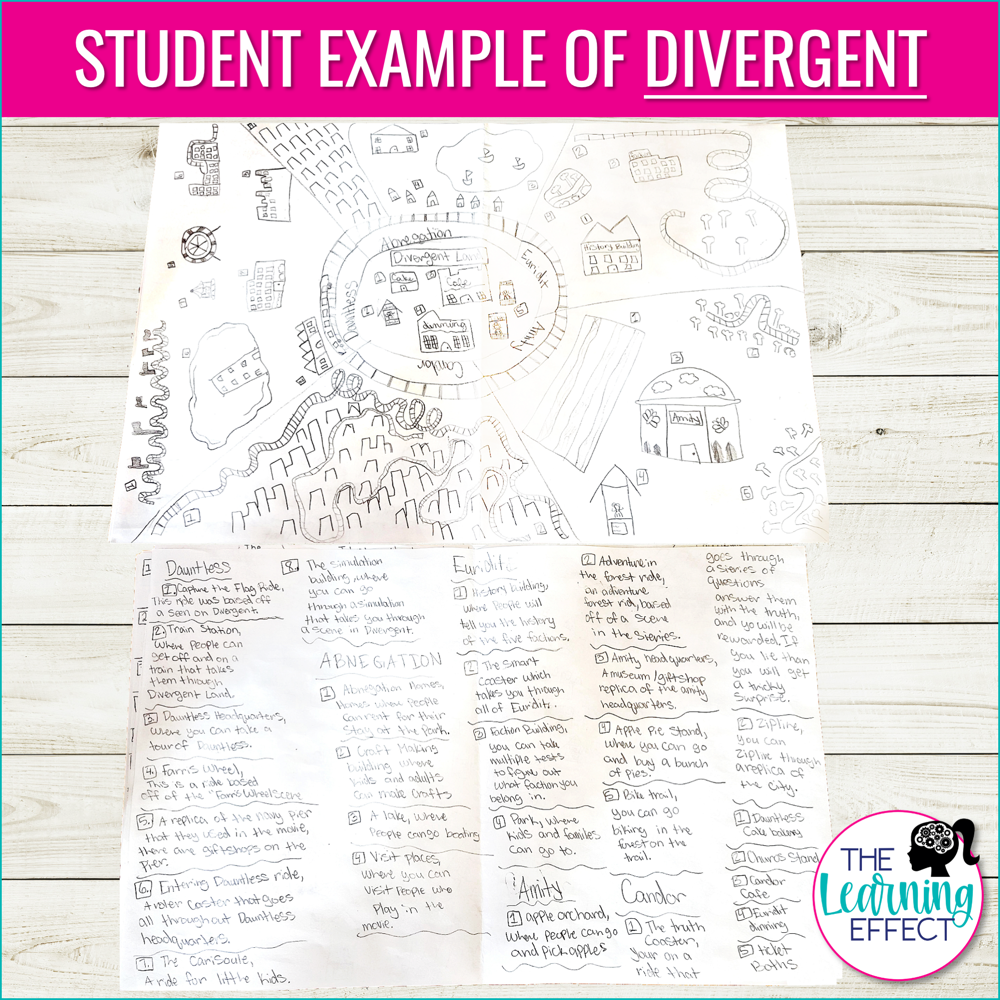 STUDENT EXAMPLE OF DIVERGENT
Abnegation
Divergent Land
Euridit
Dauntless
Amity
Candor
Cake
Cafe
dinning
History Building
Amity
1 Dauntless
1. Capture the Flag Ride,
This ride was based off
a seen on Divergent.
2. Train Station,
Where People can
get off and on a
train that takes
them through
Divergent Land.
3. Dauntless Headquarters,
Where you can take a
tour of Dauntless.
4. Farris Wheel,
This is a ride based
off of the "Farris Wheel Scene
5. A replica of the navy Pier
that they used in the movie,
there are giftshops on the
Pier.
6. Entering Dauntless ride,
A roler Coster that goes
all throughout Dauntless
headquarters.
7. The CariSoule,
A ride for little kids.
8. The simulation
building, where
you can go
through a simulation
that takes you through
a scene in Divergent.
ABNEGATION
1 Abnegation Homes,
Homes where people
can rent for their
stay at the park.
2 Craft Making
building where
kids and adults
can make crafts
3 A lake, where
People can go boating
4 Visit places,
Where you can
Visit People who
Play in the
movie.
Euridite
1 History building,
Where People will
tell you the history
of the five factions.
2 The smart
Coaster which
takes you through
all of Euridit.
3 Faction Building,
you can take
multiple tests
to figure out
what faction you
belong in.
4 Park, where
kids and families
can go to.
Amity
1 apple orchard,
where people can go
and pick apples
2 Adventure in
the forest ride,
an adventure
forest rid, based
off of a scene
in the stories.
3 Amity headquarters,
A museum/giftshop
replica of the amity
headquarters.
4 Apple Pie Stand,
where you can go
and buy a bunch
of pies.
5 Bike trail,
you can go
biking in the
forest on the
trail.
Candor
1 The truth
Coaster,
your on a
ride that
goes through
a stories of
questions
answer them
with the truth,
and yo will be
rewarded. If
you lie than
you will get
a tricky
surprise.
2 Zipline,
you can
zipline through
a replica of
the city.
1 Dauntless
Cake bakery
2 Churros Stand
3 Candor
Cafe
4 Euridit
dinning
5 ticket
Boths
THE
Learning
EFFECT